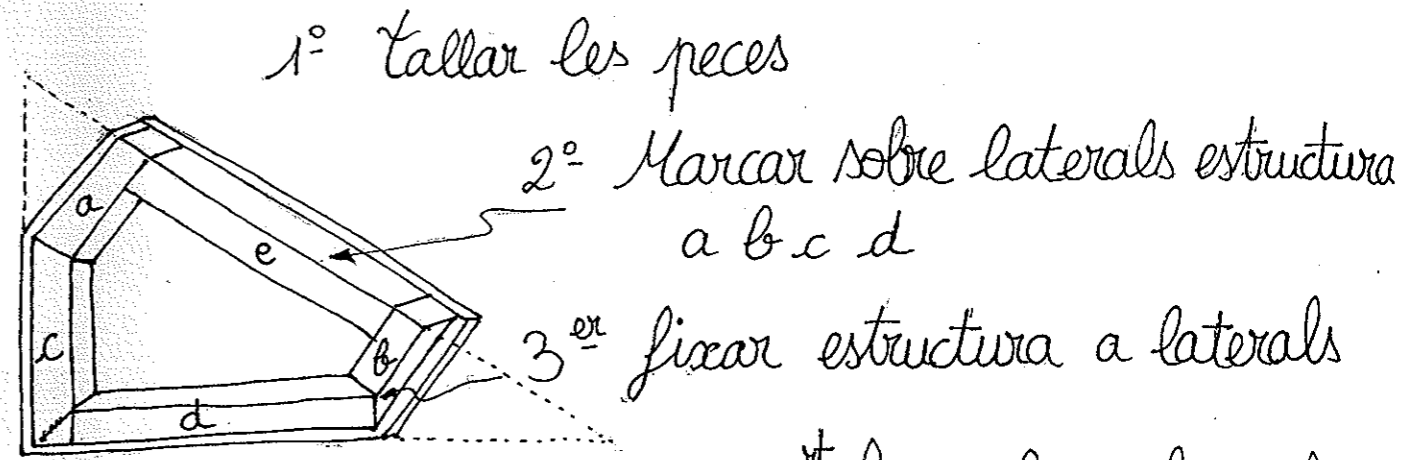 1º tallar les peces
2º Marcar sobre laterals estructura
a b c d
3er fixar estructura a laterals
a
e
c
b
d